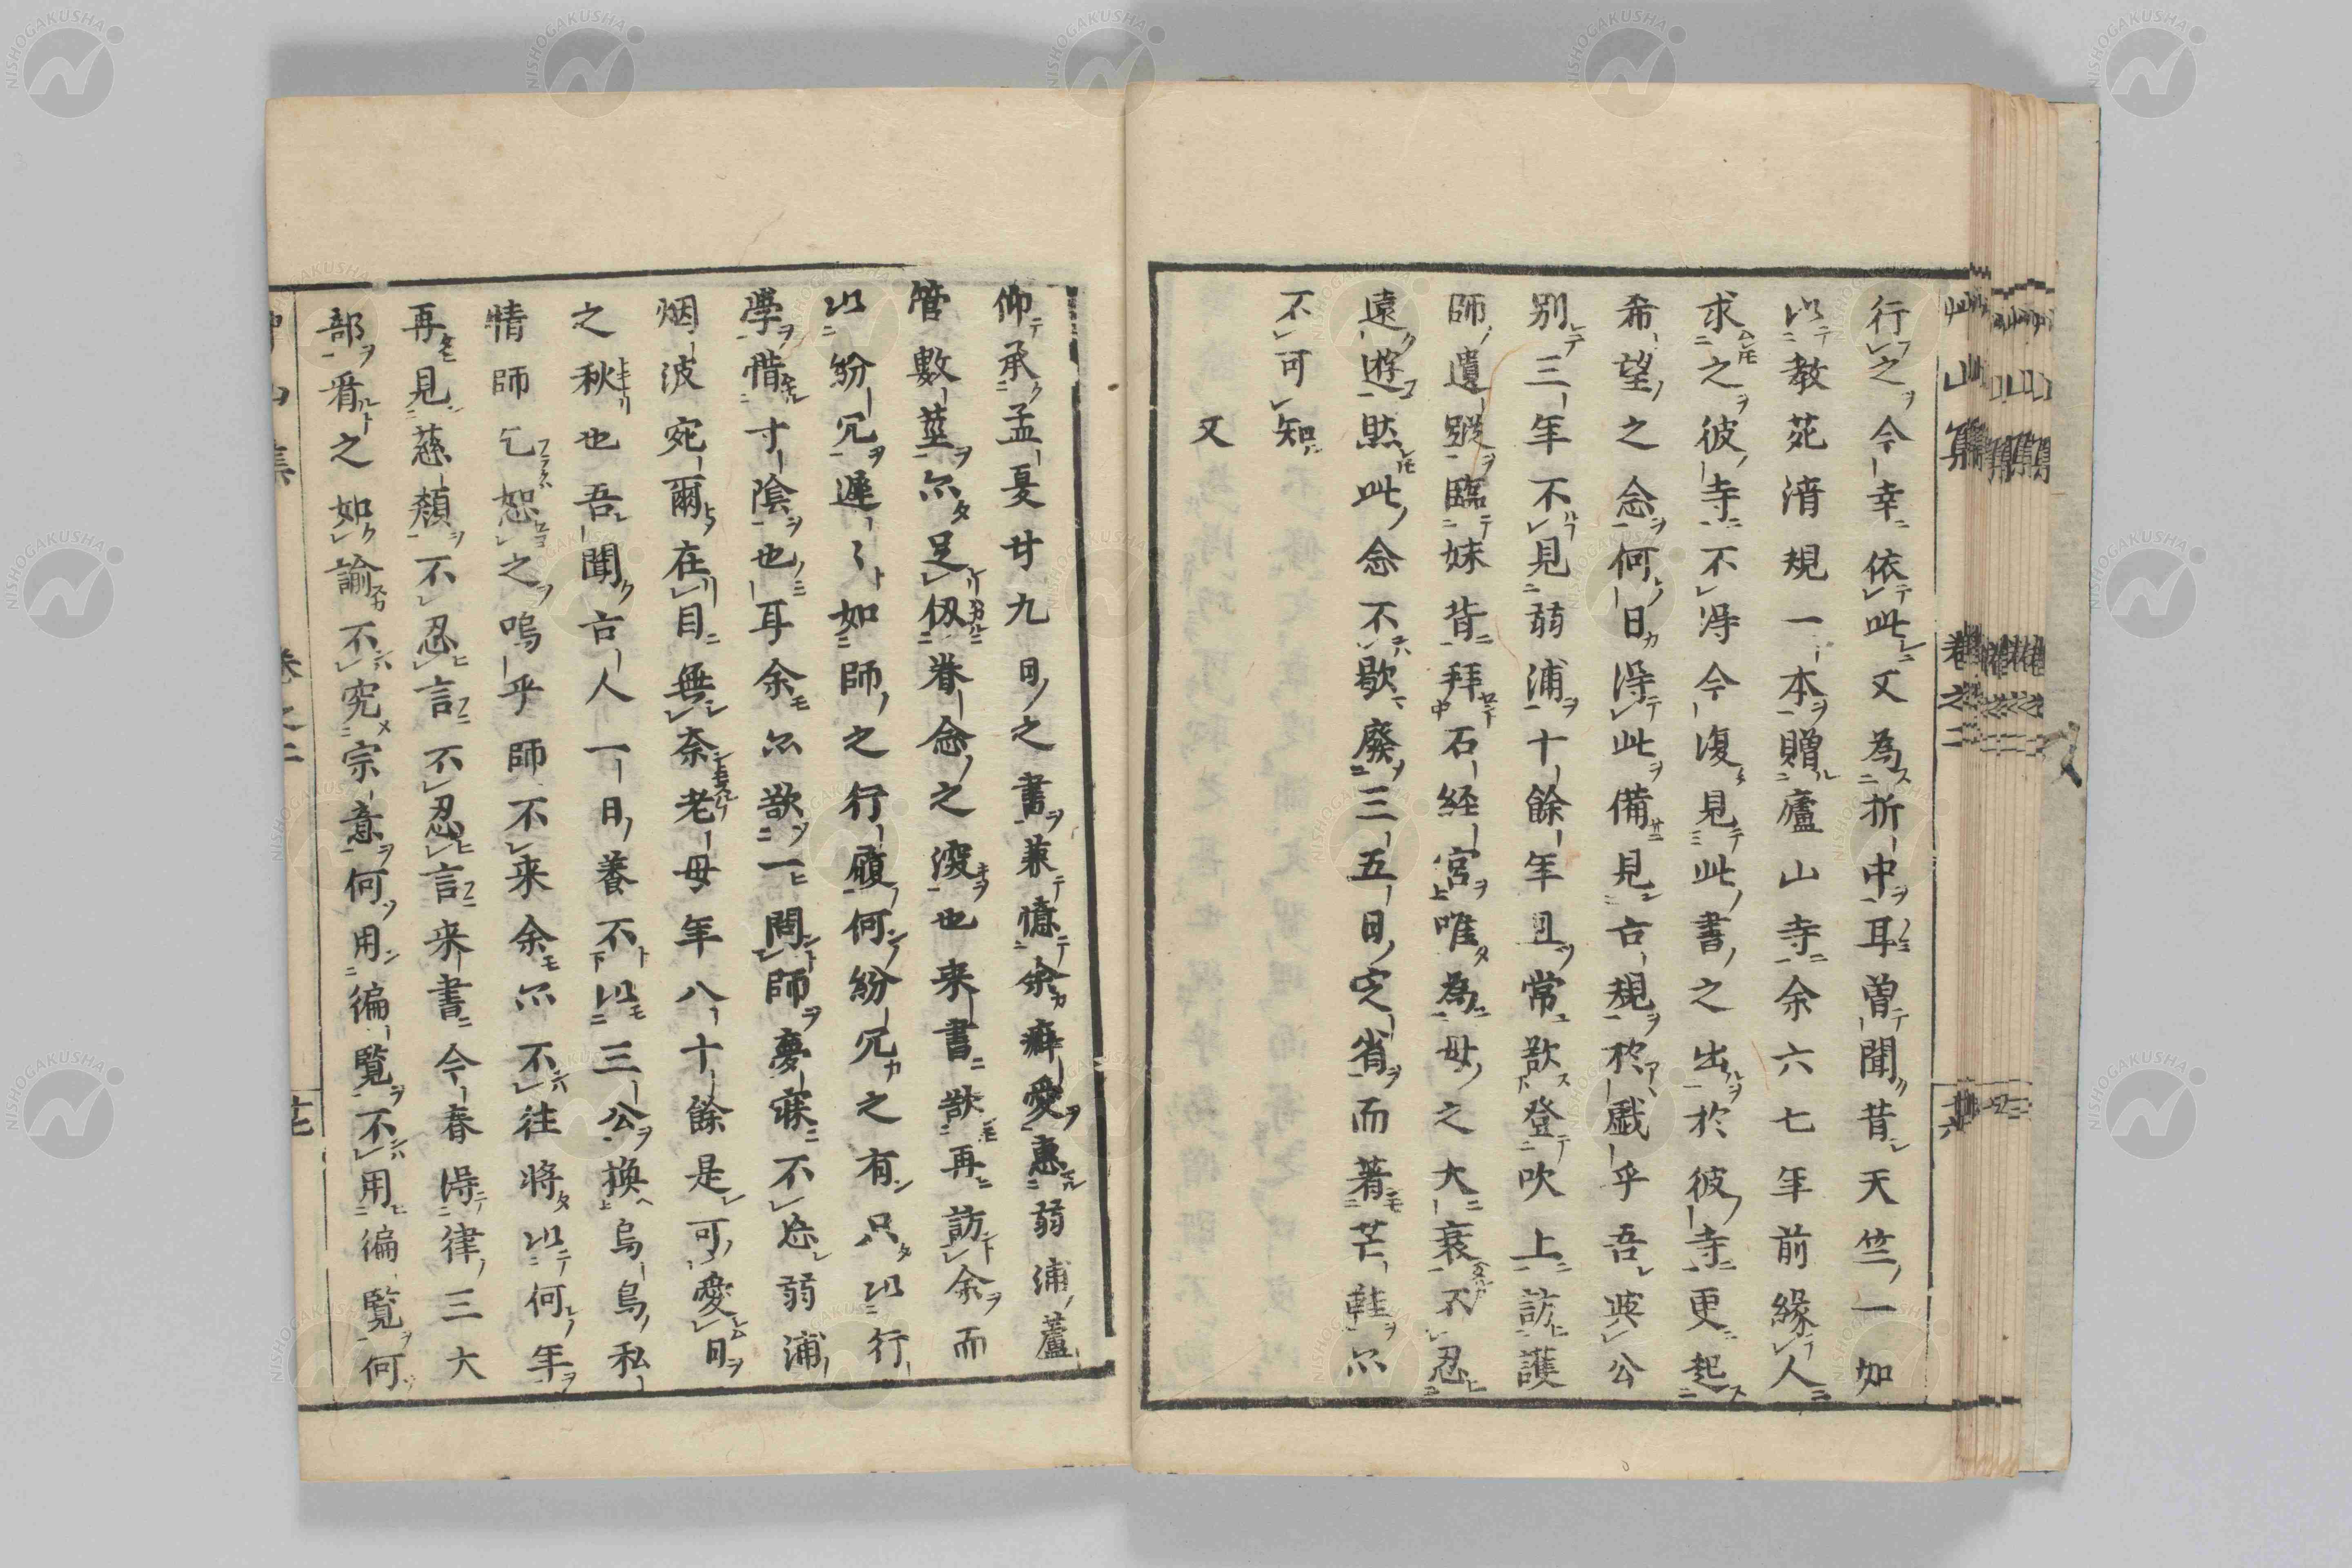 行之今幸依此文為折中耳曽聞昔天竺一如
以教苑清規一本贈廬山寺余六七年前縁人
求之彼寺不得今復見此書之出於彼寺更起
希望之念何日得此備見古規於戯乎吾與公
別三年不見弱浦十餘年且常欲登吹上訪護
師遺蹤臨妹背拜石経宮唯為母之大衰不忍
遠遊然此念不歇廢三五日定省而著芒鞋亦
不可知
又
仰承孟夏廿九日之書兼憶余癖愛惠弱浦蘆
管數莖亦足仭眷念之深也来書欲再訪余而
以紛冗遲々如師之行履何紛冗之有只以行
學惜寸陰也耳余亦欲一問師夢寐不忘弱浦
烟波宛爾在目無奈老母年八十餘是可愛日
之秋也吾聞古人一日養不以三公換烏鳥私
情師乞恕之嗚乎師不来余亦不往將以何年
再見慈顏不忍言不忍言来書今春得律三大
部看之如諭不究宗意何用徧覧不用徧覧何
艸山集 卷之二 廿六
艸山集 卷之二 廿七
NISHOGAKUSHA